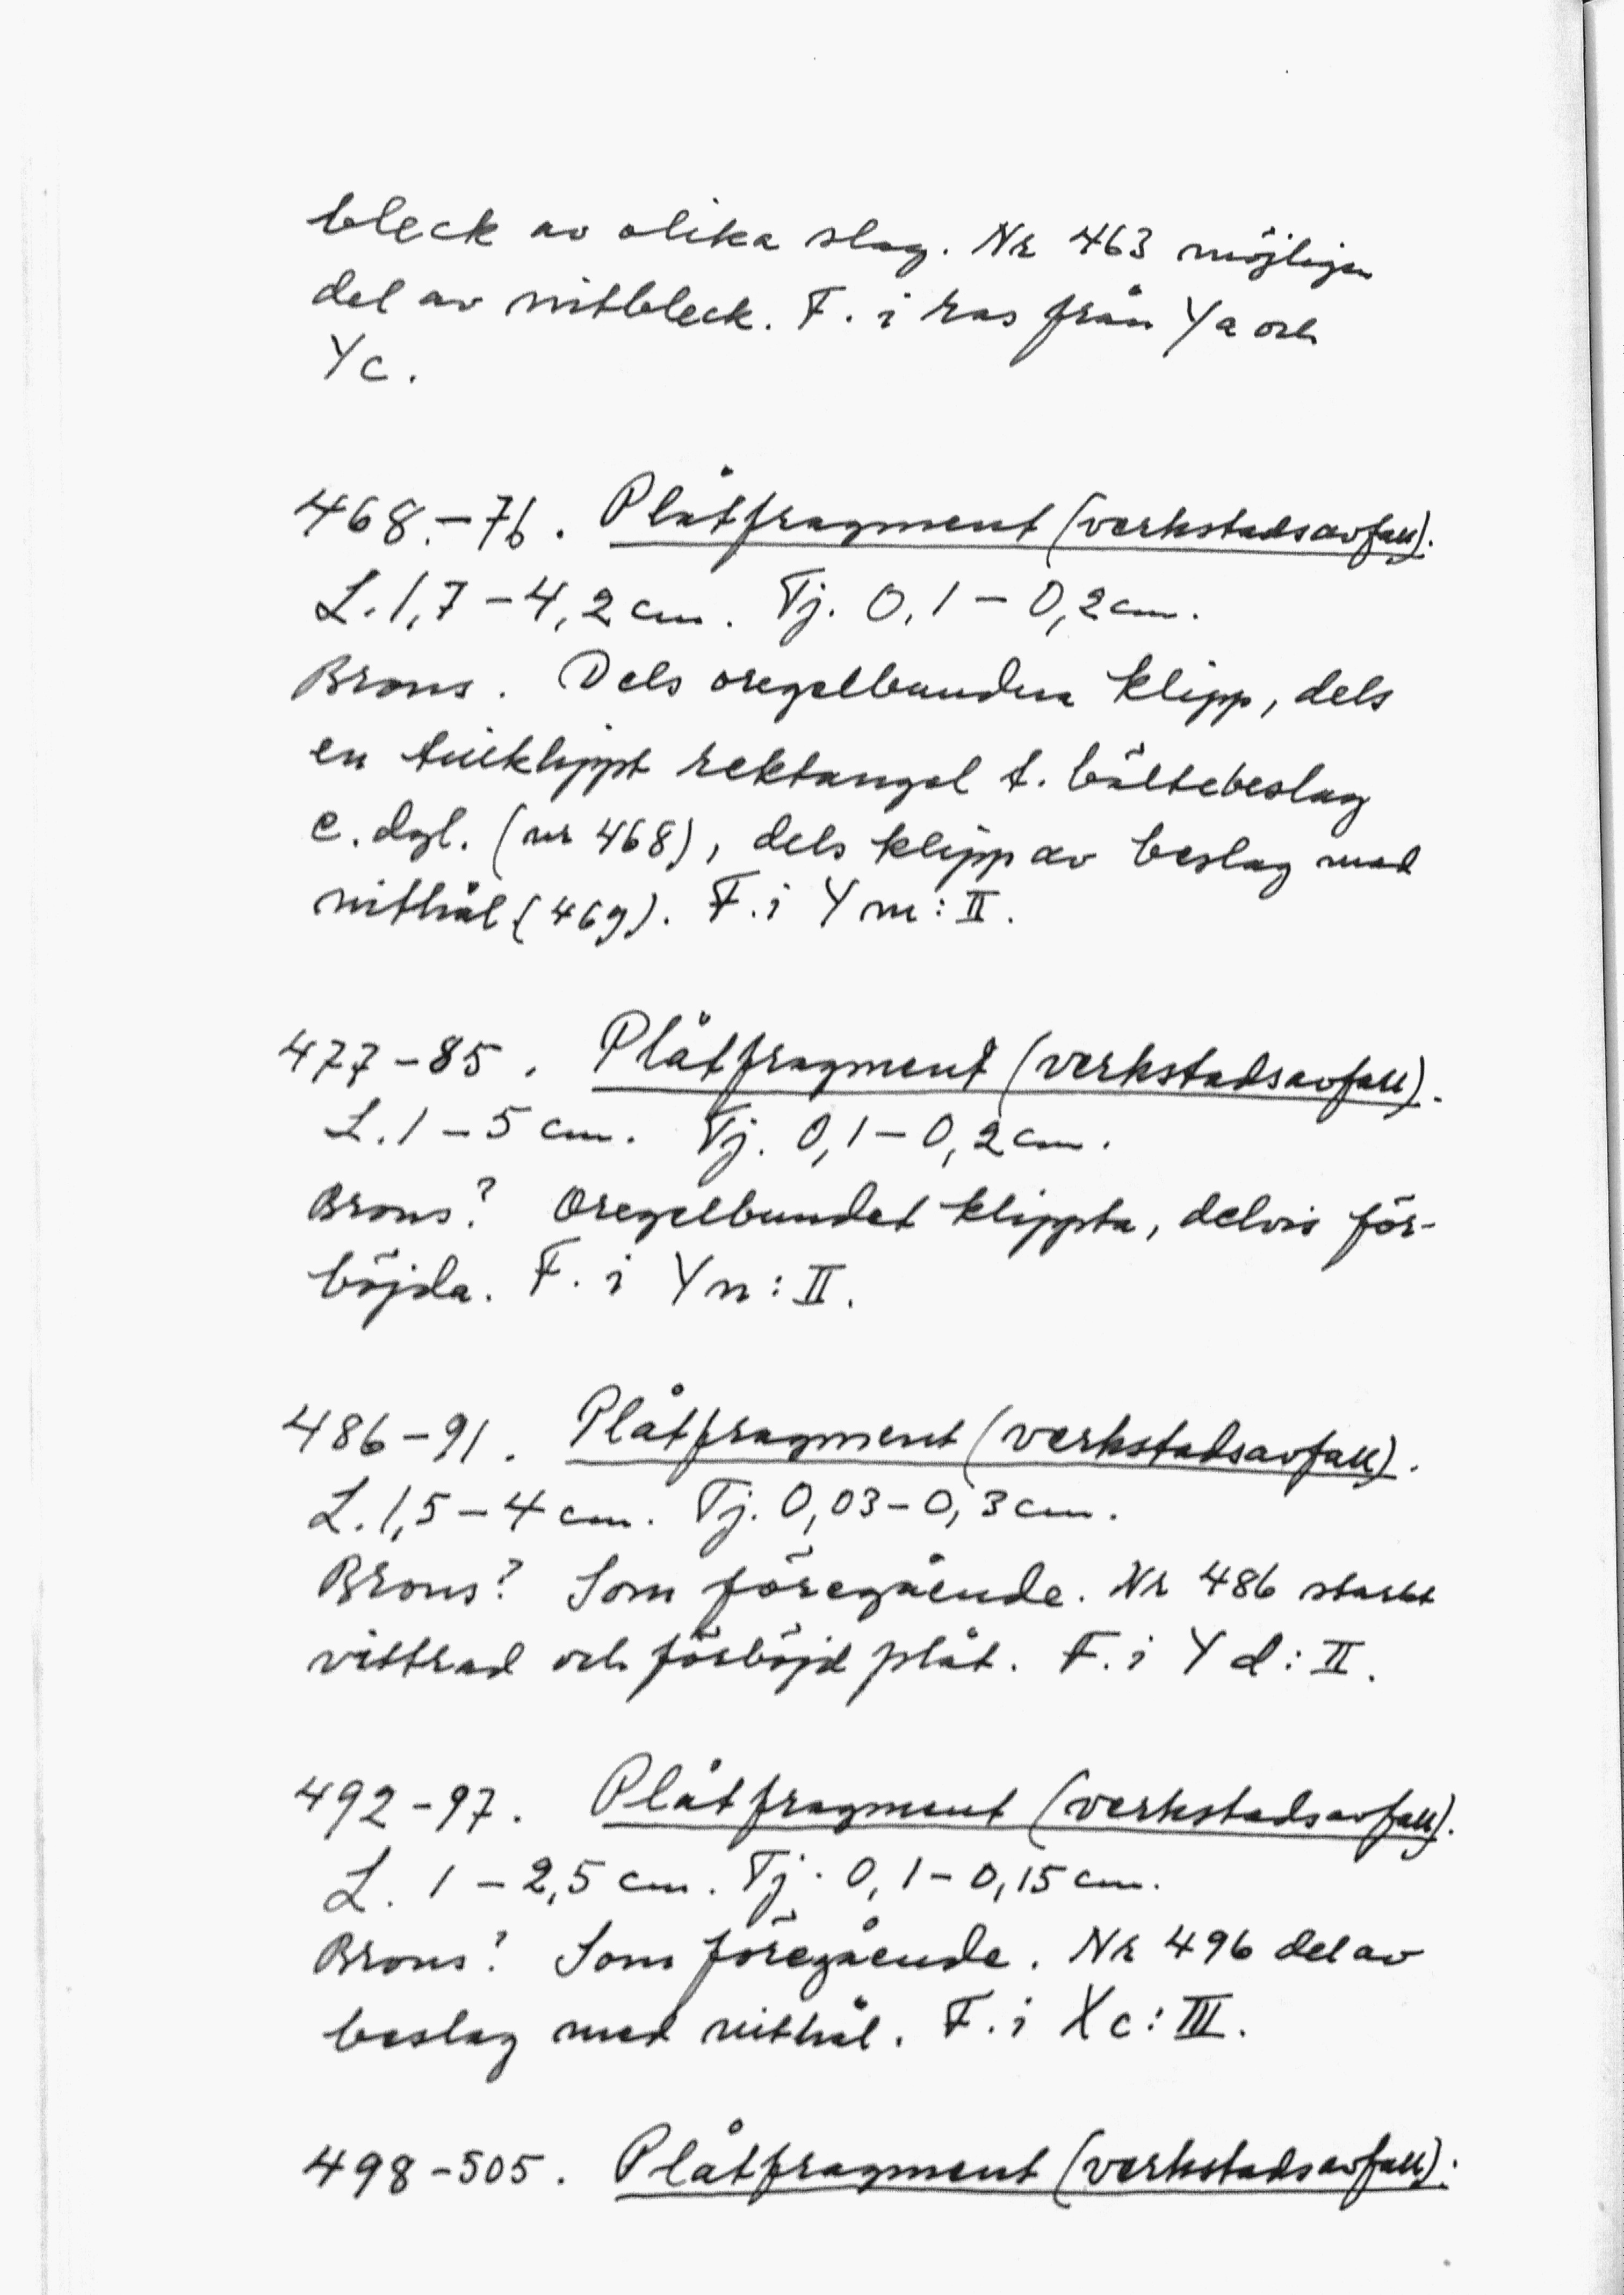 bleck av olika slag. Nr 463 möjligen
del av nitbleck. F. i ras från Ya och
Yc.
468.-76. Plåtfragment (verkstadsavfall).
L. 1,7-4,2 cm. Tj. 0,1-0,2 cm.
Brons. Dels oregelbundna klipp, dels
en tillklippt rektangel t. bältebeslag
e. dyl. (nr 468), dels klipp av beslag med
nithål (469). F. i Ym:II.
477-85. Plåtfragment (verkstadsavfall).
L. 1-5 cm. Tj. 0,1-0,2 cm.
Brons? Oregelbundet klippta, delvis för-
böjda. F. i Yn:II.
486-91. Plåtfragment (verkstadsavfall).
L. 1,5-4 cm. Tj. 0,03-0,3 cm.
Brons? Som föregående. Nr 486 starkt
vittrad och förböjd plåt. F. i Yd:II.
492-97. Plåtfragment (verkstadsavfall).
L. 1-2,5 cm. Tj. 0,1-0,15 cm.
Brons? Som föregående. Nr 496 del av
beslag med nithål. F. i Xc:III.
498-505. Plåtfragment (verkstadsavfall).